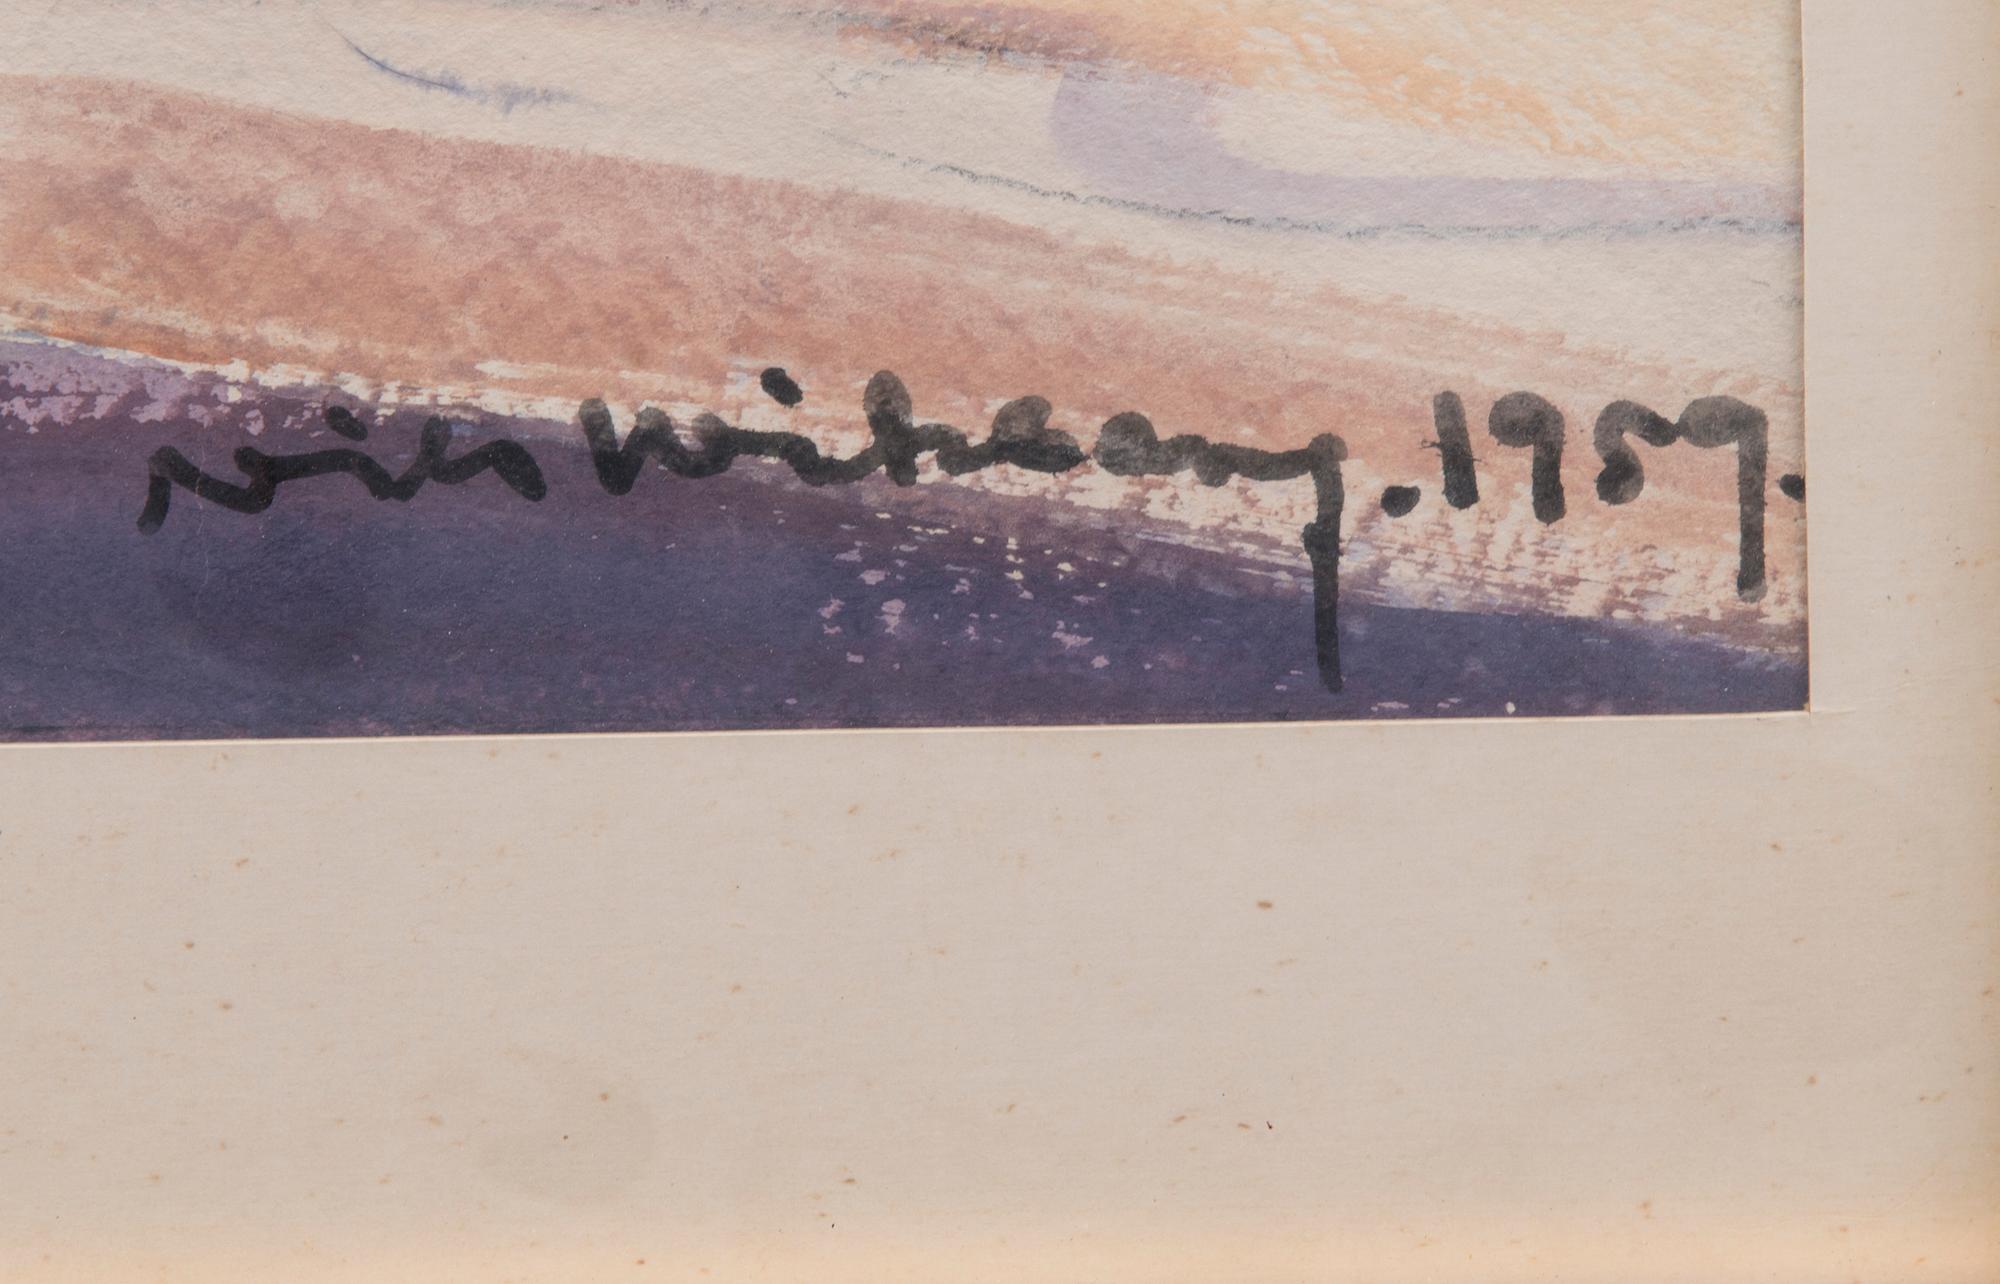 Nils Wikberg.1959.